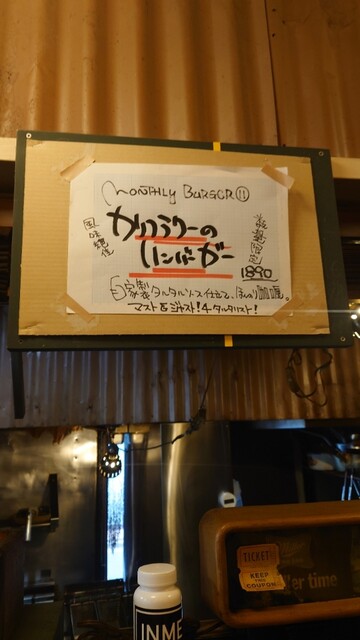 MONTHLY BURGER ⑪
風味絶佳
カリフラワーの
ハンバーガー
数量限定
1,890
自家製タルタルソース仕立て、ほんのり咖喱。
マスト&ジャスト!4タルタリスト!
TICKET
KEEP THIS
COUPON
er time
INME